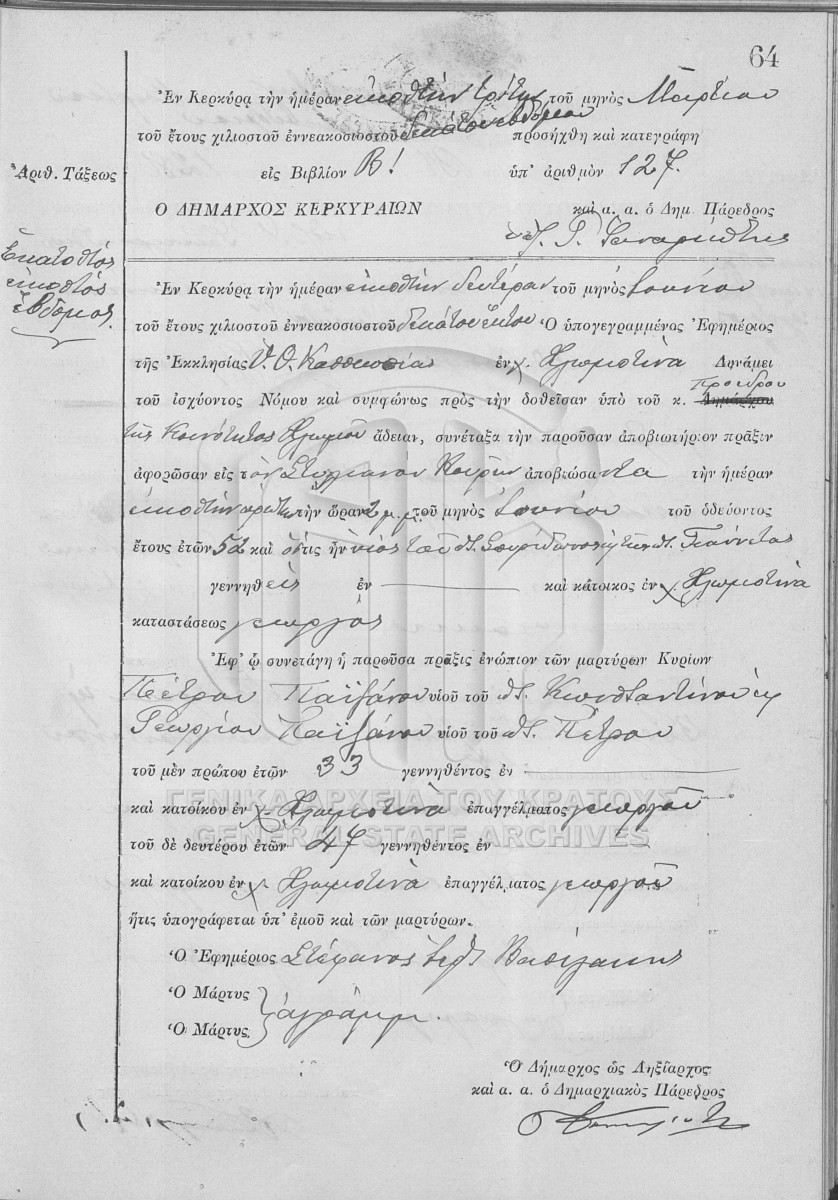 64
Ἐν Κερκύρᾳ τὴν ἡμέραν εἰκοστὴν τρίτην τοῦ μηνὸς Μαρτίου
τοῦ ἔτους χιλιοστοῦ ἐννεακοσιοστοῦ δεκάτου ἑβδόμου προσήχθη καὶ κατεγράφη
Ἀριθ. Τάξεως εἰς Βιβλίον Β! ὑπ' ἀριθμὸν 127.
Ο ΔΗΜΑΡΧΟΣ ΚΕΡΚΥΡΑΙΩΝ καὶ α. α. ὁ Δημ. Πάρεδρος
Ἑκατοστὸς
εἰκοστὸς
ἕβδομος.
Ἐν Κερκύρᾳ τὴν ἡμέραν εἰκοστὴν δευτέραν τοῦ μηνὸς Ἰουνίου
τοῦ ἔτους χιλιοστοῦ ἐννεακοσιοστοῦ δεκάτου ἕκτου Ὁ ὑπογεγραμμένος Ἐφημέριος
τῆς Ἐκκλησίας Υ. Θ. ἐν χ. Χλωμοτινὰ Δυνάμει
τοῦ ἰσχύοντος Νόμου καὶ συμφώνως πρὸς τὴν δοθεῖσαν ὑπὸ τοῦ κ. Δημάρχου Προέδρου
τῆς Κοινότητος Χλωμοῦ ἄδειαν, συνέταξα τὴν παροῦσαν ἀποβιωτήριον πρᾶξιν
ἀφορῶσαν εἰς τὸν Στυλιανὸν Κουρῆν ἀποβιώσαντα τὴν ἡμέραν
εἰκοστὴν πρώτην τὴν ὥραν μ.μ. τοῦ μηνὸς Ἰουνίου τοῦ ὁδεύοντος
ἔτους ἐτῶν 52 καὶ ὅςτις ἦν υἱὸς τοῦ ποτ. Σπυρίδωνος κ τῆς ποτ. Γιαννέτας
γεννηθεὶς ἐν καὶ κάτοικος ἐν χ. Χλωμοτινὰ
καταστάσεως γεωργὸς
Ἐφ' ᾧ συνετάγη ἡ παροῦσα πρᾶξις ἐνώπιον τῶν μαρτύρων Κυρίων
Πέτρου Παϊζάνου υἱοῦ τοῦ ποτ. Κωνσταντίνου κ
Γεωργίου Παϊζάνου υἱοῦ τοῦ ποτ. Πέτρου
τοῦ μὲν πρώτου ἐτῶν 33 γεννηθέντος ἐν
καὶ κατοίκου ἐν χ. Χλωμοτινὰ ἐπαγγέλματος γεωργοῦ
ΓΕΝΙΚΑ ΑΡΧΕΙΑ ΤΟΥ ΚΡΑΤΟΥΣ
GENERAL STATE ARCHIVES
τοῦ δὲ δευτέρου ἐτῶν 47 γεννηθέντος ἐν
καὶ κατοίκου ἐν χ. Χλωμοτινὰ ἐπαγγέλματος γεωργοῦ
ἥτις ὑπογράφεται ὑπ' ἐμοῦ καὶ τῶν μαρτύρων.
Ὁ Ἐφημέριος Στέφανος ἱερ. Βασιλάκης
Ὁ Μάρτυς
Ὁ Μάρτυς ἀγράμμ.
Ὁ Δήμαρχος ὡς Ληξίαρχος
καὶ α. α. ὁ Δημαρχιακὸς Πάρεδρος